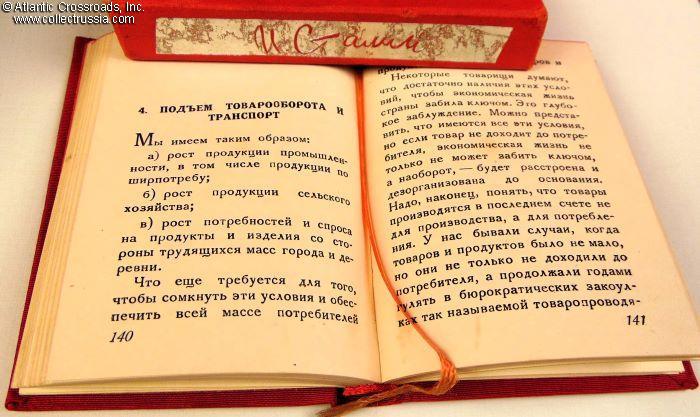 © Atlantic Crossroads, Inc.
www.collectrussia.com
И Сталин
4. ПОДЪЕМ ТОВАРООБОРОТА И
ТРАНСПОРТ
Мы имеем таким образом:
а) рост продукции промышлен-
ности, в том числе продукции по
ширпотребу;
б) рост продукции сельского
хозяйства;
в) рост потребностей и спроса
на продукты и изделия со сто-
роны трудящихся масс города и де-
ревни.
Что еще требуется для того,
чтобы сомкнуть эти условия и обес-
печить всей массе потребителей
140
и
Некоторые товарищи думают,
что достаточно наличия этих усло-
вий, чтобы экономическая жизнь
страны забила ключом. Это глубо-
кое заблуждение. Можно предста-
вить, что имеются все эти условия,
но если товар не доходит до потре-
бителя, экономическая жизнь не
только не может забить ключом,
а наоборот, — будет расстроена и
дезорганизована до основания.
Надо, наконец, понять, что товары
производятся в последнем счете не
для производства, а для потребле-
ния. У нас бывали случаи, когда
товаров и продуктов было не мало,
но они не только не доходили до
потребителя, а продолжали годами
гулять в бюрократических закоул-
ках так называемой товаропроводя-
141